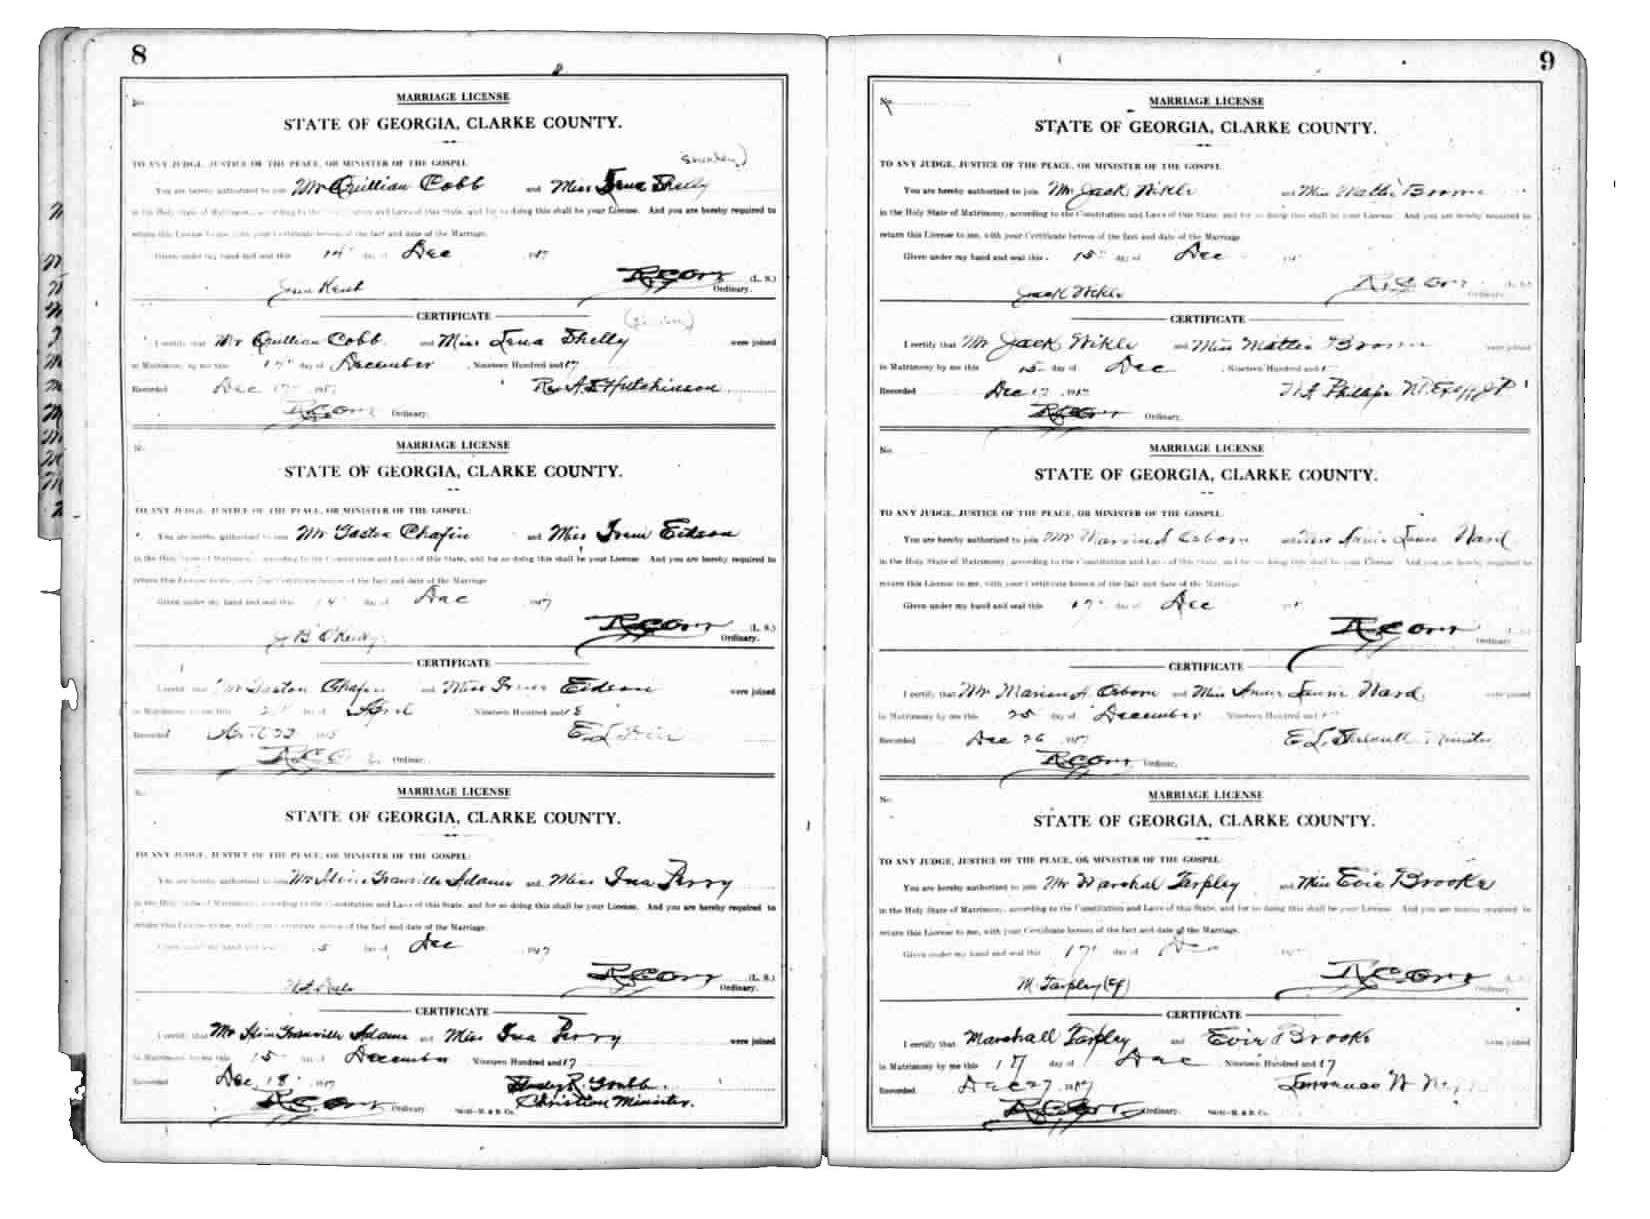 8
No.
MARRIAGE LICENSE
STATE OF GEORGIA, CLARKE COUNTY.
TO ANY JUDGE, JUSTICE OF THE PEACE, OR MINISTER OF THE GOSPEL
You are hereby authorized to join Mr Quillian Cobb and Miss Lena Shelly
in the Holy State of Matrimony, according to the Constitution and Laws of this State, and for so doing this shall be your License. And you are hereby required to
return this License to me, with your Certificate hereon of the fact and date of the Marriage.
Given under my hand and seal this 14 day of Dec 1917
R C Orr (L. S.)
Ordinary.
CERTIFICATE
I certify that Mr Quillian Cobb and Miss Lena Shelly were joined
in Matrimony by me this day of December, Nineteen Hundred and 17
Recorded Dec 17 1917 Rev A. E Hutchinson
R C Orr Ordinary.
No.
MARRIAGE LICENSE
STATE OF GEORGIA, CLARKE COUNTY.
TO ANY JUDGE, JUSTICE OF THE PEACE, OR MINISTER OF THE GOSPEL:
You are hereby authorized to join Mr Gaston Chafin and Miss Irene Eidson
in the Holy State of Matrimony, according to the Constitution and Laws of this State, and for so doing this shall be your License. And you are hereby required to
return this License to me, with your Certificate hereon of the fact and date of the Marriage
Given under my hand and seal this 14 day of Dec 1917
R C Orr (L. S.)
Ordinary.
CERTIFICATE
I certify that Mr Gaston Chafin and Miss Irene Eidson were joined
in Matrimony by me this day of April Nineteen Hundred and 18
Recorded April 22 E. L.
R C O Ordinary.
No.
MARRIAGE LICENSE
STATE OF GEORGIA, CLARKE COUNTY.
TO ANY JUDGE, JUSTICE OF THE PEACE, OR MINISTER OF THE GOSPEL:
You are hereby authorized to join Mr Granville Adams and Miss Ina Perry
in the Holy State of Matrimony, according to the Constitution and Laws of this State, and for so doing this shall be your License. And you are hereby required to
return this License to me, with your Certificate hereon of the fact and date of the Marriage.
Given under my hand and seal this day of Dec 1917
R C Orr (L. S.)
Ordinary.
CERTIFICATE
I certify that Mr Granville Adams and Miss Ina Perry were joined
in Matrimony by me this 15 day of December Nineteen Hundred and 17
Recorded Dec. 18 1917
R. C. Orr Ordinary Christian Minister.
9
No.
MARRIAGE LICENSE
STATE OF GEORGIA, CLARKE COUNTY.
TO ANY JUDGE, JUSTICE OF THE PEACE, OR MINISTER OF THE GOSPEL
You are hereby authorized to join Mr Jack Wikle and Miss Mattie
in the Holy State of Matrimony, according to the Constitution and Laws of this State, and for so doing this shall be your License. And you are hereby required to
return this License to me, with your Certificate hereon of the fact and date of the Marriage
Given under my hand and seal this 15 day of Dec
R. C Orr (L. S.)
Ordinary.
Jack Wikle
CERTIFICATE
I certify that Mr Jack Wikle and Miss Mattie were joined
in Matrimony by me this 15 day of Dec, Nineteen Hundred and
Recorded Dec 17 1917 Phillips
R C Orr Ordinary.
No.
MARRIAGE LICENSE
STATE OF GEORGIA, CLARKE COUNTY.
TO ANY JUDGE, JUSTICE OF THE PEACE, OR MINISTER OF THE GOSPEL
You are hereby authorized to join Mr Osborn and Miss Annie Ward
in the Holy State of Matrimony, according to the Constitution and Laws of this State, and for so doing this shall be your License. And you are hereby required to
return this License to me, with your Certificate hereon of the fact and date of the Marriage
Given under my hand and seal this 17 day of Dec
R C Orr (L. S.)
Ordinary.
CERTIFICATE
I certify that Mr Osborn and Miss Annie Ward were joined
in Matrimony by me this 25 day of December Nineteen Hundred and
Recorded Dec 26 1917 E. L. Minister
R C Orr Ordinary.
No.
MARRIAGE LICENSE
STATE OF GEORGIA, CLARKE COUNTY.
TO ANY JUDGE, JUSTICE OF THE PEACE, OR MINISTER OF THE GOSPEL:
You are hereby authorized to join Mr Marshal Tarpley and Miss Evie Brooks
in the Holy State of Matrimony, according to the Constitution and Laws of this State, and for so doing this shall be your License. And you are hereby required to
return this License to me, with your Certificate hereon of the fact and date of the Marriage.
Given under my hand and seal this 17 day of
R C Orr (L. S.)
Ordinary.
M. Tarpley
CERTIFICATE
I certify that Marshall Tarpley and Evie Brooks were joined
in Matrimony by me this 17 day of Dec Nineteen Hundred and 17
Recorded Dec 27 1917
R C Orr Ordinary.